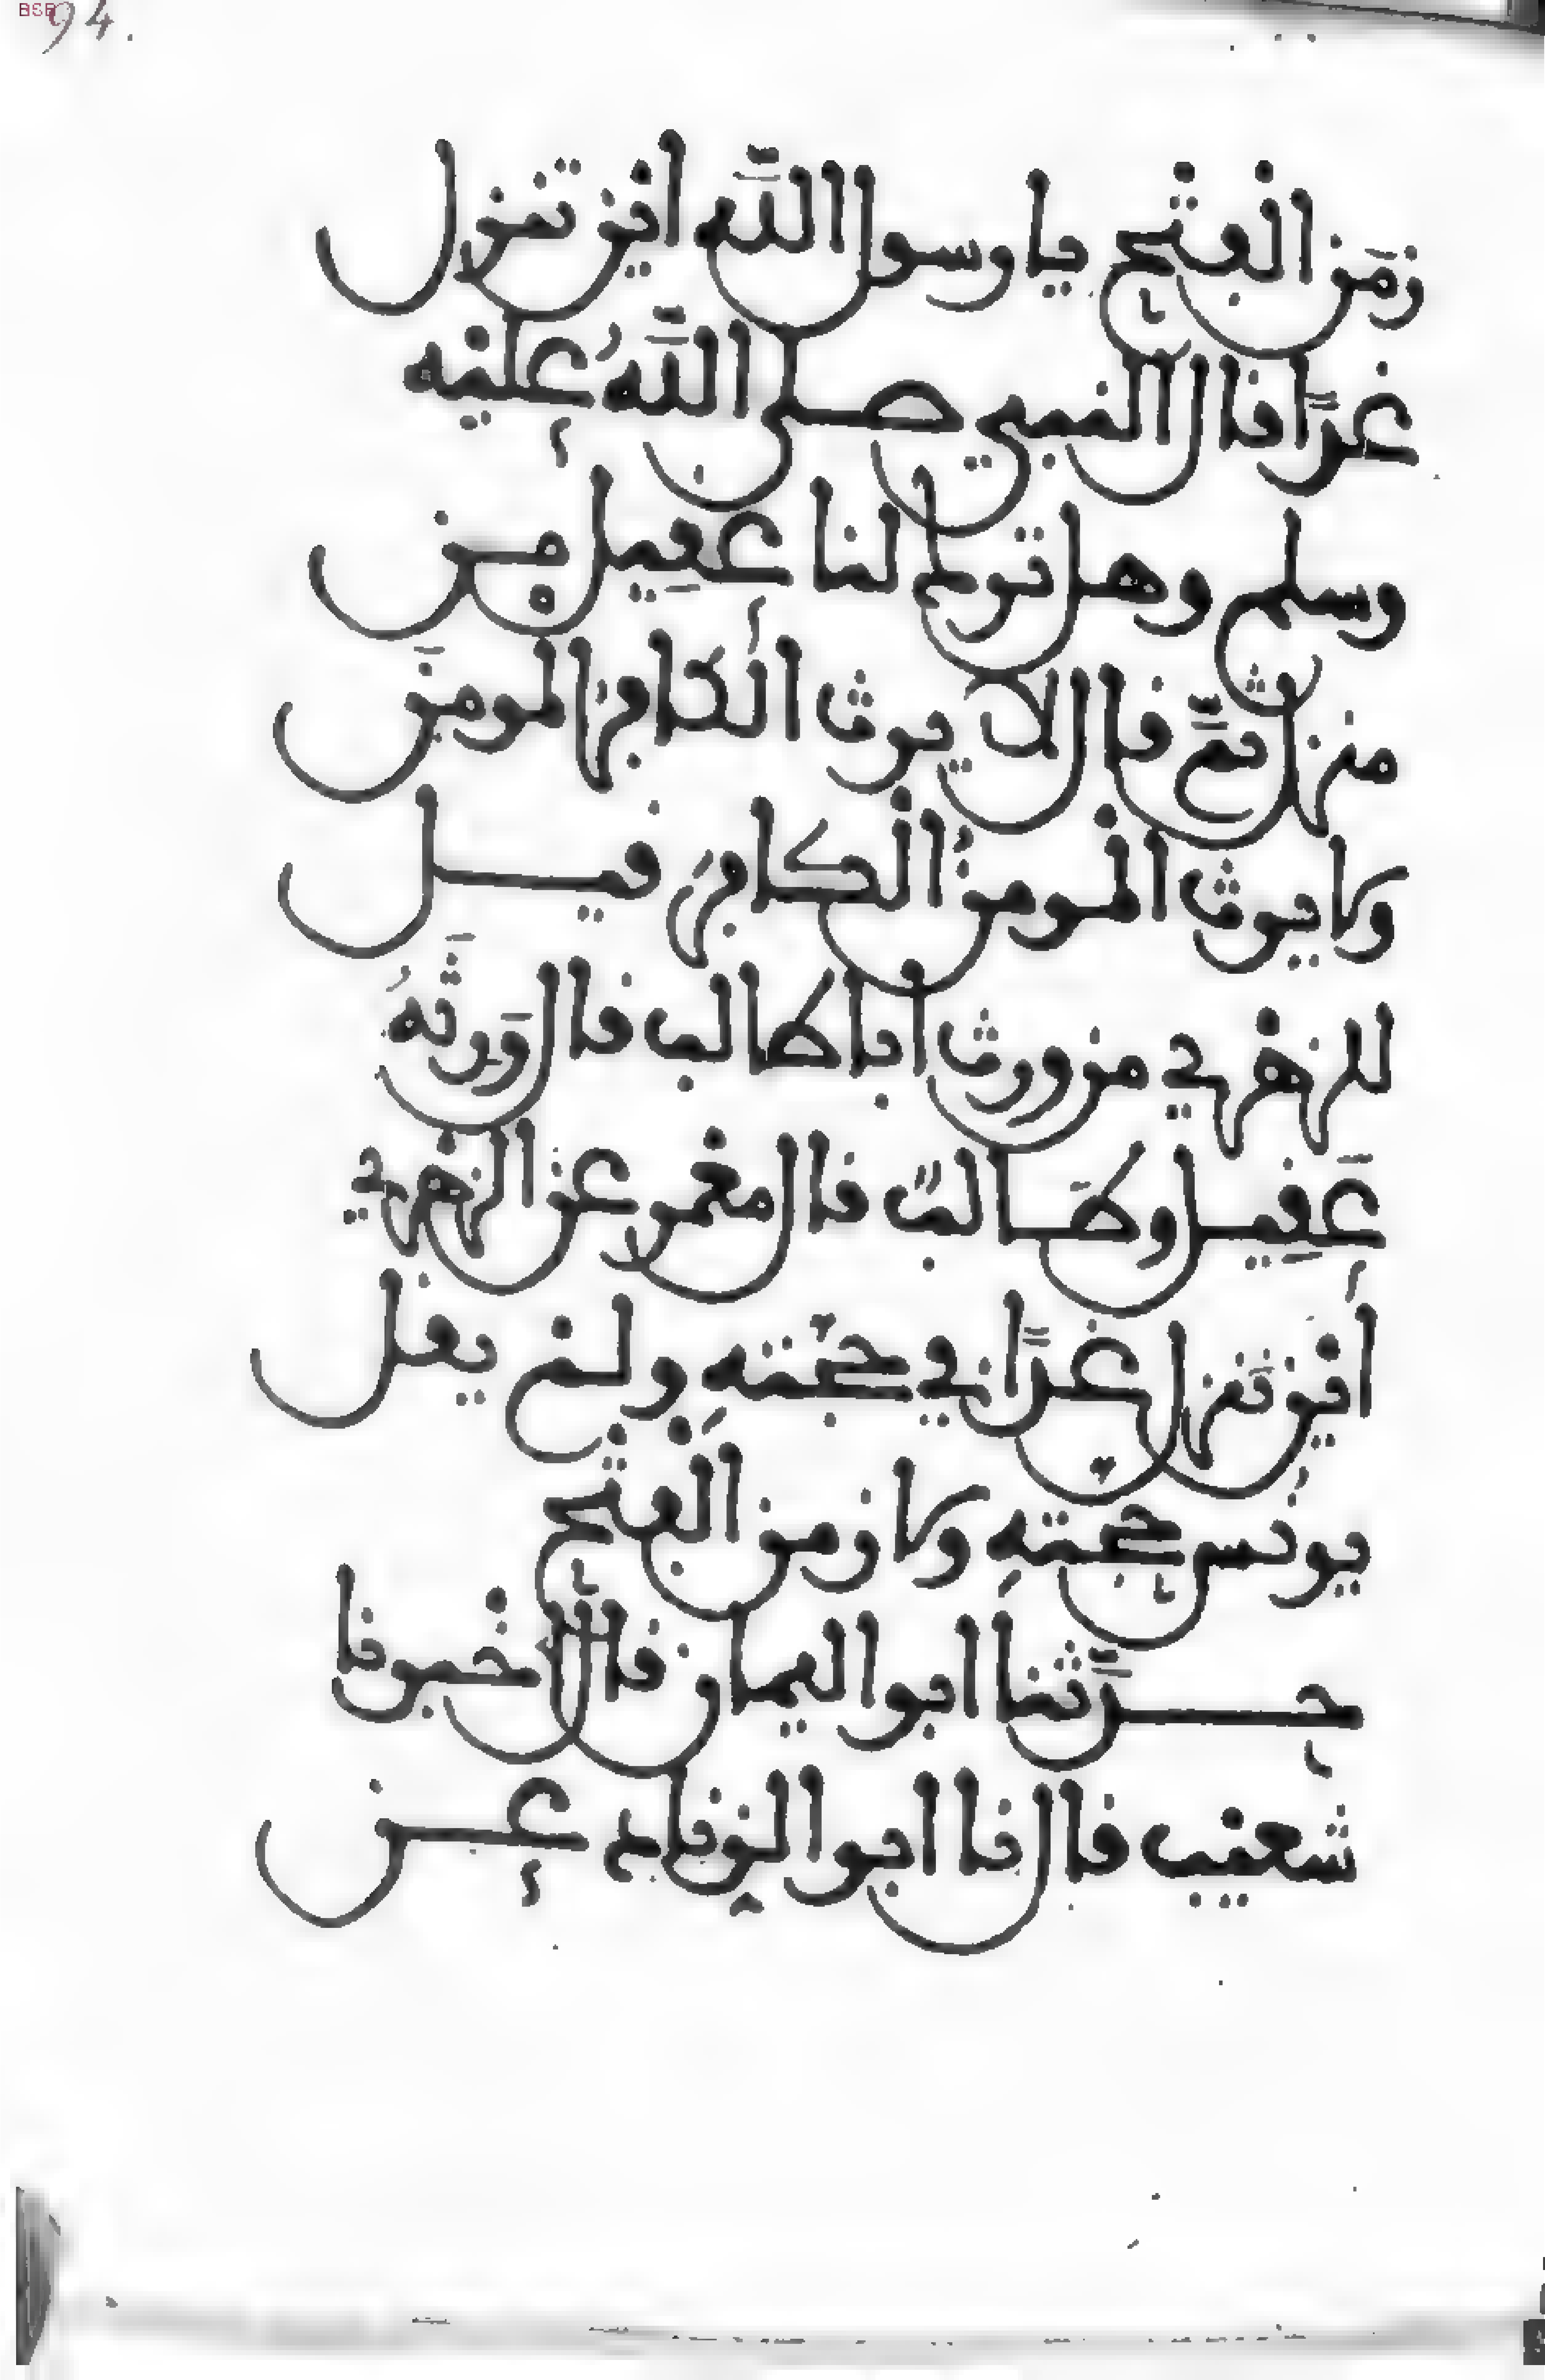 94.
زمَن الفتح يا رسول الله اين تنزل
غدًا قال النبي صلى اللهُ عليه
وسلم وهل ترك لنا عقِيل من
منزل ثمّ قال لا يرث الكافر المومنَ
ولا يرث المومنُ الكافرَ قيل
للزهري من ورث ابا طالب قال وَرِثَهُ
عَقِيل وطَالبٌ قال معمر عن الزهري
أين تَنزل غدًا في حجته ولم يقل
يونس حجتهِ ولا زمن الفتح
حدّثنا ابو اليمان قال أخبرنا
شعيب قال نا ابو الزناد عن